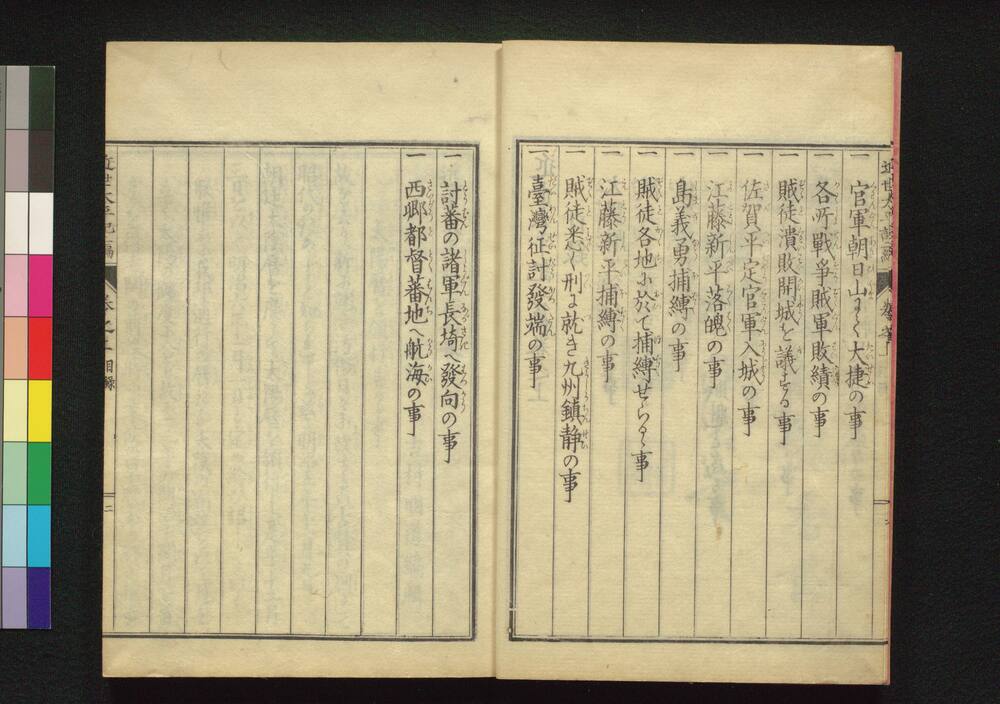 一 官軍朝日山にて大捷の事
一 各所戰爭賊軍敗績の事
一 賊徒潰敗開城を議する事
一 佐賀平定官軍入城の事
一 江藤新平落魄の事
一 島義勇捕縛の事
一 賊徒各地に於て捕縛せらるゝ事
一 江藤新平捕縛の事
一 賊徒悉く刑に就き九州鎮静の事
一 臺灣征討發端の事
一 討蕃の諸軍長埼へ發向の事
一 西郷都督蕃地へ航海の事